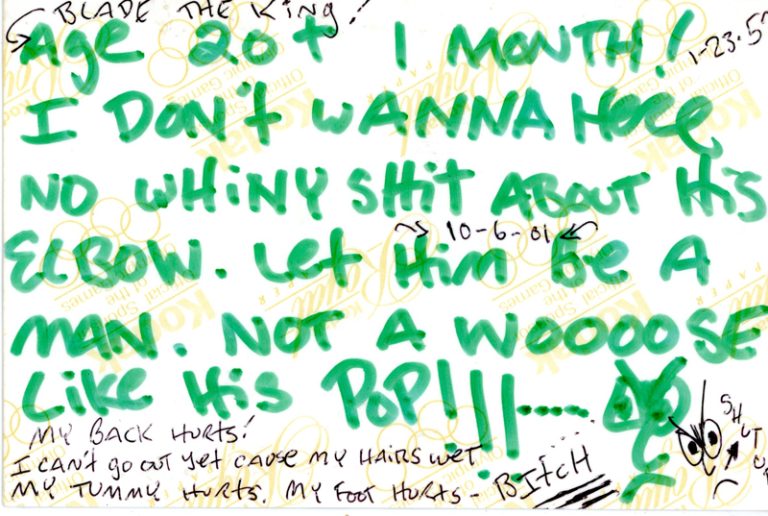 BLADE THE KING
Age 20+ 1 MONTH!
1-23-57
I DON't WANNA Here
NO WHINY SHit ABOUT His
ELBOW. Let Him be A
10-6-01
MAN. NOT A WOOOOSE
Like His POP!!!-----
MY BACK HURTS!
I CAN't go out yet cause MY HAIRS WET
MY TUMMY HURTS. MY FOOT HURTS - BITCH
SHUT UP
Kodak
Official Sponsor
of the
Olympic Games
Royal
PAPER